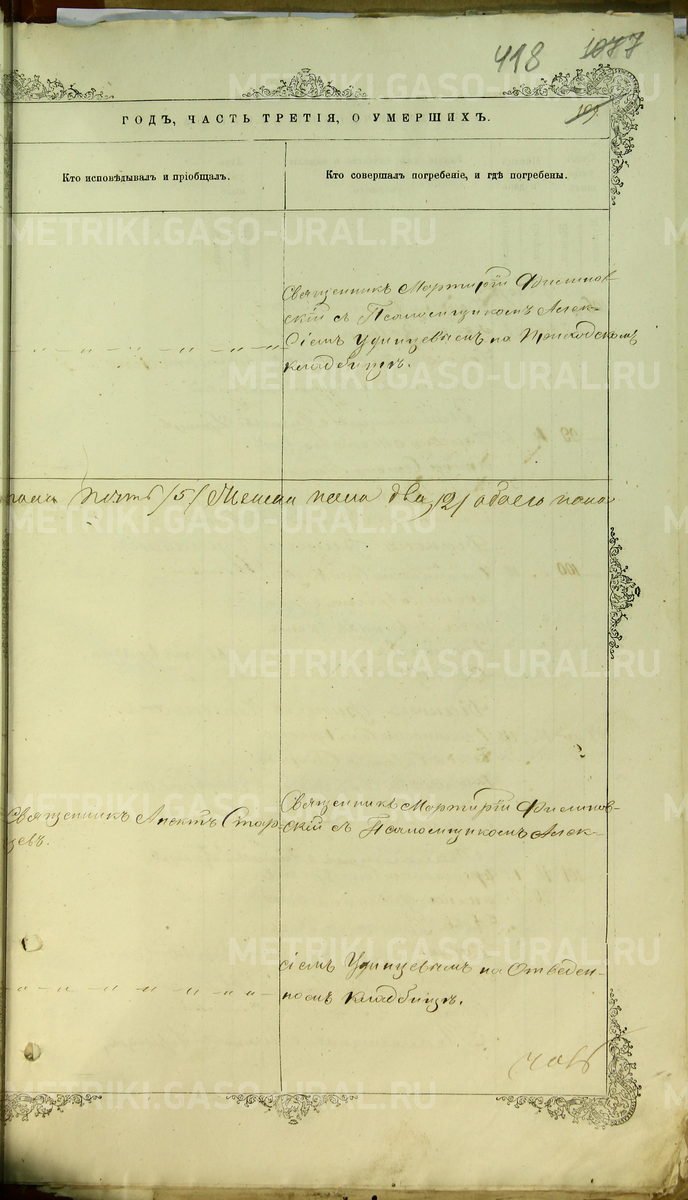 418 1077
109.
ГОДЪ, ЧАСТЬ ТРЕТІЯ, О УМЕРШИХЪ.
Кто исповѣдывалъ и пріобщалъ.
Кто совершалъ погребеніе, и гдѣ погребены.
Священникъ Мартирій Филипов-
скій съ Псаломщикомъ Алек-
сіемъ Удинцевымъ на Приходскомъ
кладбищѣ.
— „ — „ — „ — „ — „ — „
пять /5/ Женска пола два /2/ обоего пола
Священникъ Старцевъ.
Священникъ Мартирій Филипов-
скій съ Псаломщикомъ Алек-
сіемъ Удинцевымъ на Отведен-
номъ кладбищѣ.
— „ — „ — „ — „ — „ — „ —
METRIKI.GASO-URAL.RU